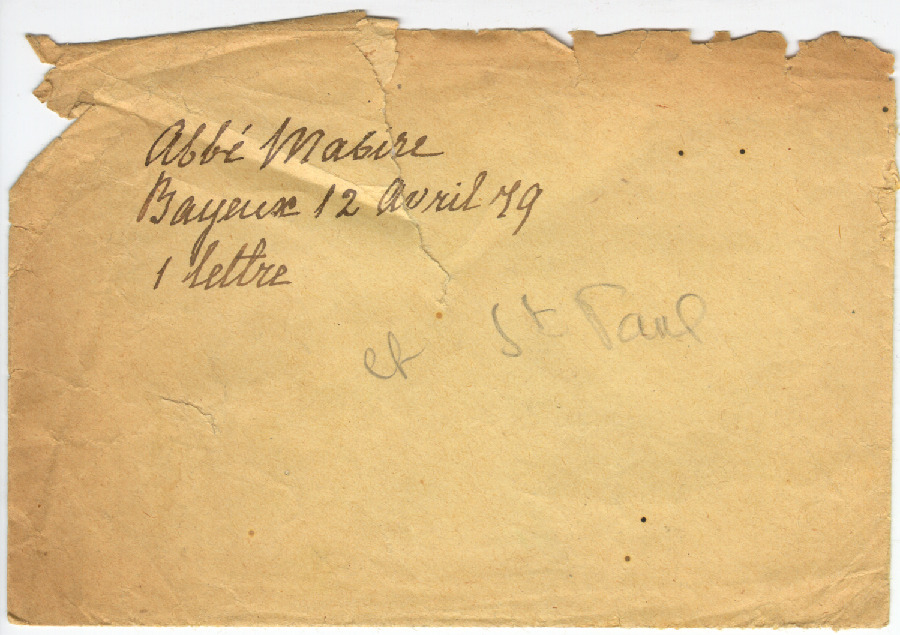 Abbé Mabire
Bayeux 12 Avril 79
1 lettre
et St Paul